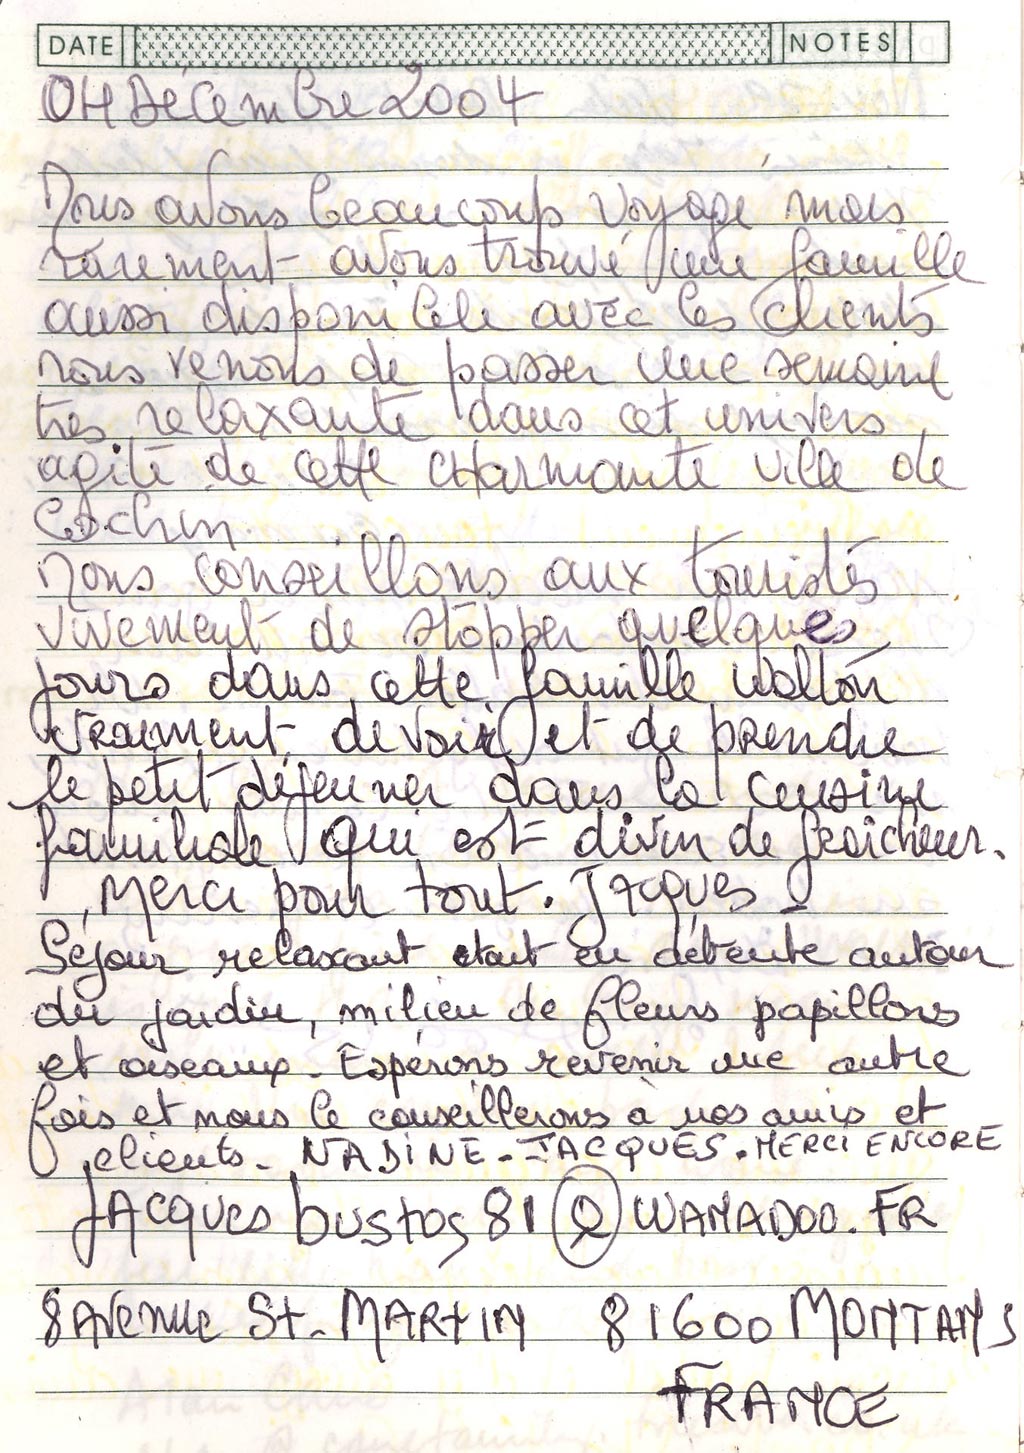 DATE NOTES
04 Décembre 2004
Nous avons beaucoup voyagé mais
rarement avons trouvé une famille
aussi disponible avec les clients
nous venons de passer une semaine
très relaxante dans cet univers
agité de cette charmante ville de
Cochin
Nous conseillons aux touristes
vivement de stopper quelques
jours dans cette famille Walton
vraiment de voir et de prendre
le petit déjeuner dans la cuisine
familiale qui est divin de fraicheur.
Merci pour tout. Jacques
Séjour relaxant étant en détente autour
du jardin, milieu de fleurs papillons
et oiseaux. Espérons revenir une autre
fois et nous le conseillerons à nos amis et
clients. NADINE - JACQUES. MERCI ENCORE
JACQUES bustos 81 @ WANADOO.FR
8 AVENUE St. MARTIN 81600 MONTANS
FRANCE